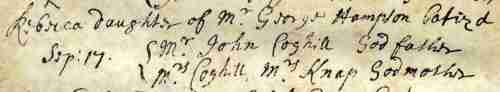 Rebecca daughter of Mr George Hampson Batizd
Sep: 17. Mr John Coghill God father
Mrs Coghill, Mrs Knap Godmother